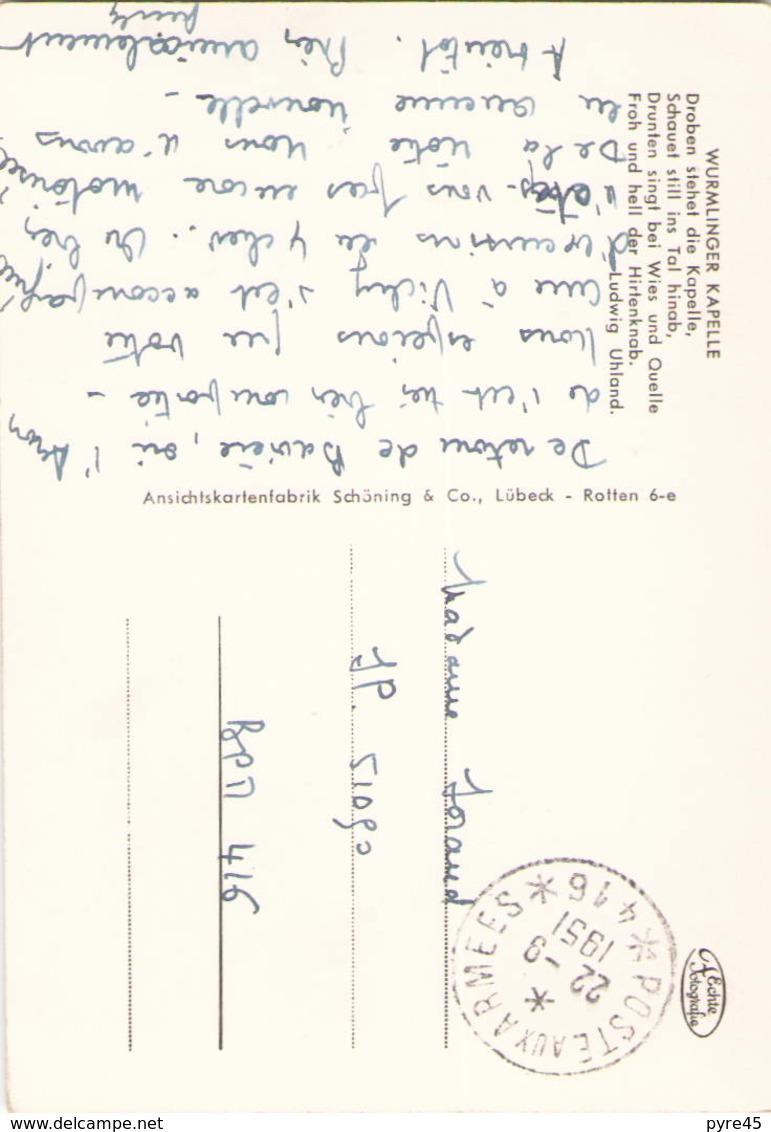 WURMLINGER KAPELLE
Droben stehet die Kapelle,
Schauet still ins Tal hinab,
Drunten singt bei Wies und Quelle
Froh und hell der Hirtenknab.
Ludwig Uhland.
De retour de Bavière, où l'
de s'est très bien comportée -
Nous espérons que votre
cure à Vichy s'est accompagnée
d'excursions en 4 chev. Ou bien
n'êtes-vous pas encore motorisés
De la nôtre nous n'avons
eu aucune nouvelle -
A bientôt. Bien amicalement
Ansichtskartenfabrik Schöning & Co., Lübeck - Rotten 6-e
Madame
SP. 51080
BPM 416
POSTE AUX ARMEES
* 416 *
22 - 9
1951
*
Echte
Fotografie
www.delcampe.net
pyre45